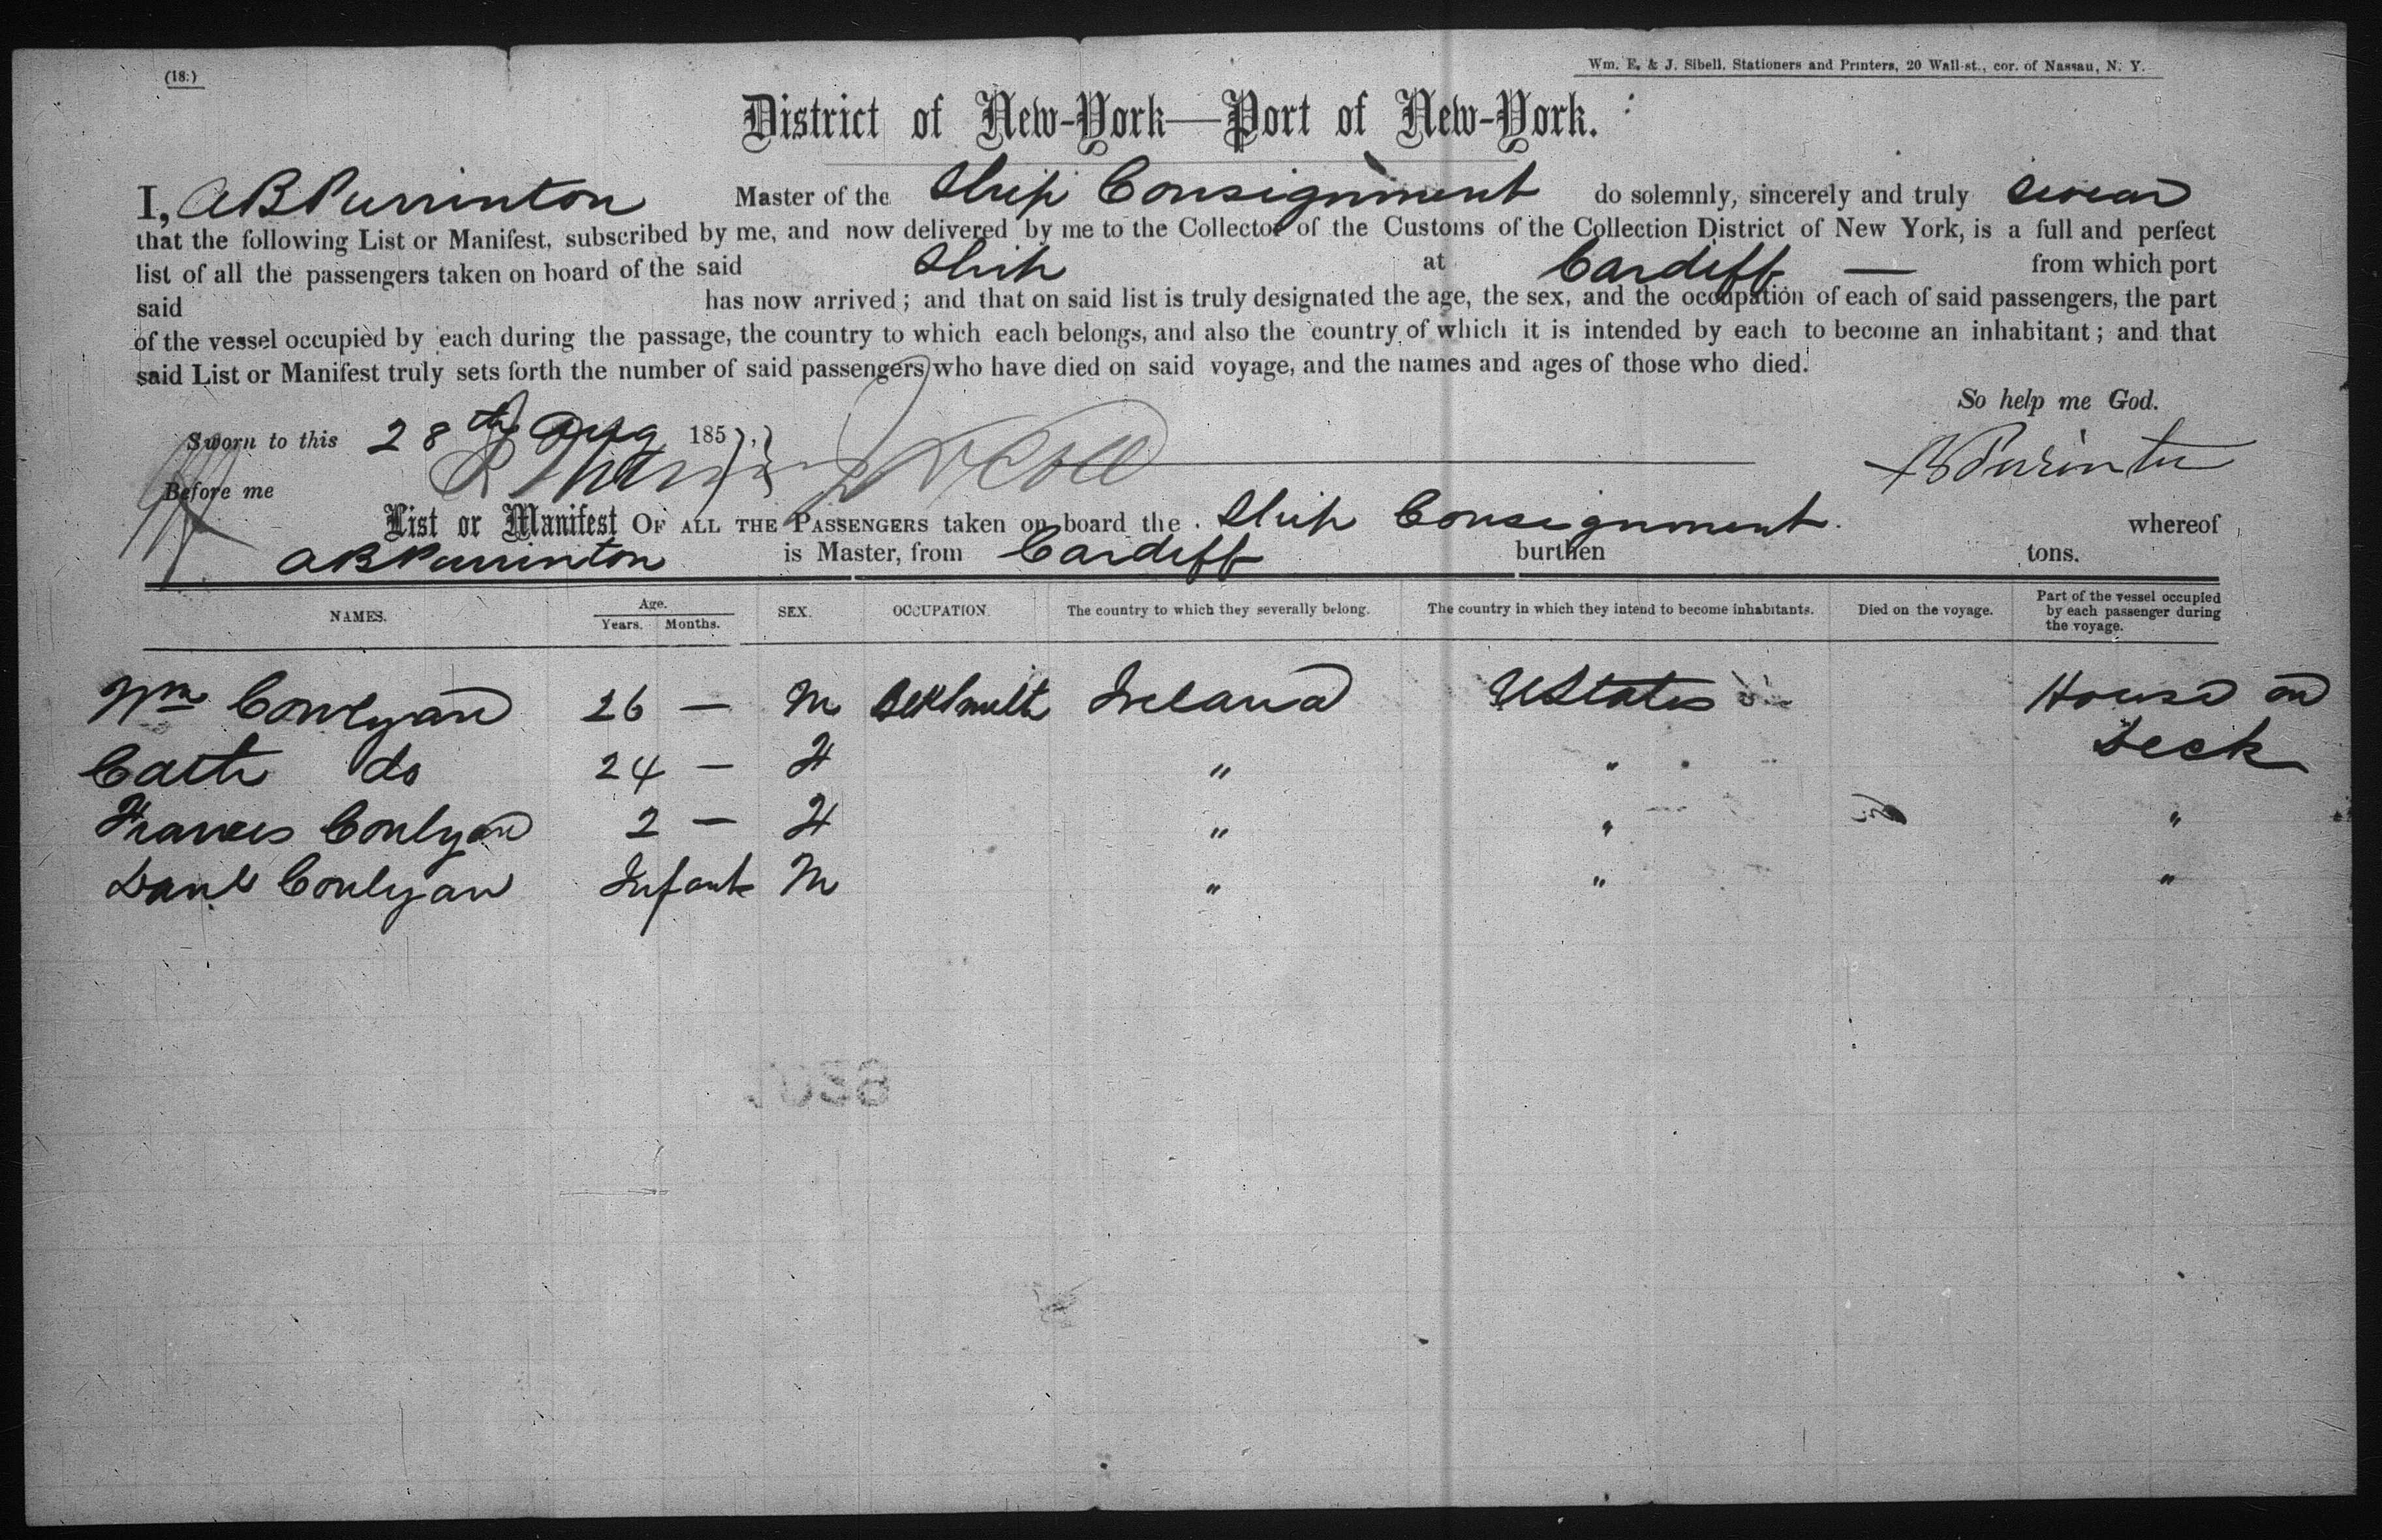 (18.)
Wm. E. & J. Sibell, Stationers and Printers, 20 Wall-st., cor. of Nassau, N. Y.
District of New-York—Port of New-York.
I, A B Purrinton Master of the Ship Consignment do solemnly, sincerely and truly swear
that the following List or Manifest, subscribed by me, and now delivered by me to the Collector of the Customs of the Collection District of New York, is a full and perfect
list of all the passengers taken on board of the said Ship at Cardiff — from which port
said has now arrived; and that on said list is truly designated the age, the sex, and the occupation of each of said passengers, the part
of the vessel occupied by each during the passage, the country to which each belongs, and also the country of which it is intended by each to become an inhabitant; and that
said List or Manifest truly sets forth the number of said passengers who have died on said voyage, and the names and ages of those who died.
So help me God.
Sworn to this 28th Aug 185
A B Purinton
Before me
List or Manifest OF ALL THE PASSENGERS taken on board the Ship Consignment whereof
A B Purrinton is Master, from Cardiff burthen tons.
NAMES. Age. Years. Months. SEX. OCCUPATION. The country to which they severally belong. The country in which they intend to become inhabitants. Died on the voyage. Part of the vessel occupied by each passenger during the voyage.
Wm Conlyan 26 — M BlkSmith Ireland UStates House on Deck
Cath do 24 — F " "
Frances Conlyan 2 — F " " "
Danl Conlyan Infant M " " "